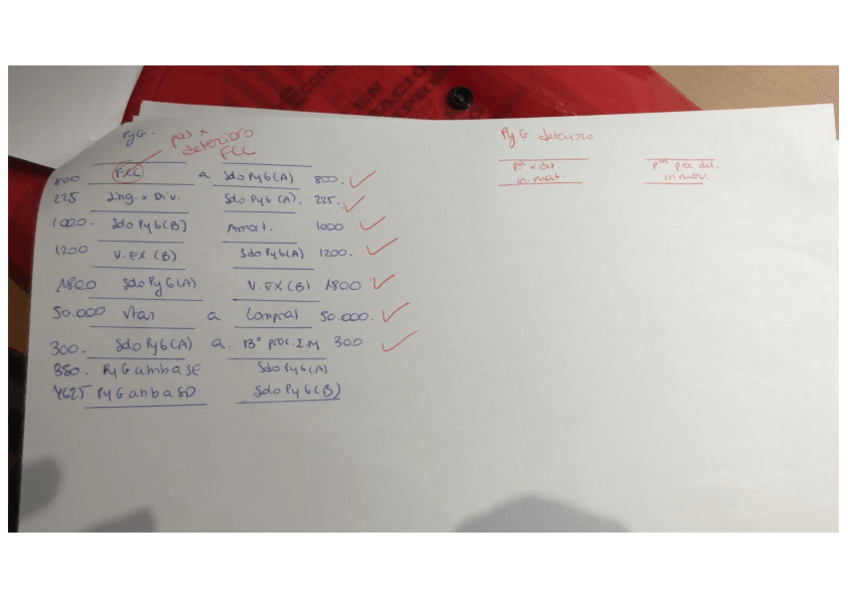 PyG.
pas x
deterioro
FCC
800 FCC a Sdo PyG(A) 800.
225 Ing. x Div. Sdo PyG (A). 225.
1000. Sdo PyG(B) Amort. 1000
1200 V. EX (B) Sdo PyG(A) 1200.
1800 Sdo PyG(A) V. EX (B) 1800
50.000 Vtas a Compras 50.000.
300. Sdo PyG(A) a. Bº proc. I.M 300
350. PyG amba SE Sdo PyG(A)
4625 PyG amba SD Sdo PyG(B)
PyG deterioro.
x det
in. mat.
proc det.
inmov.